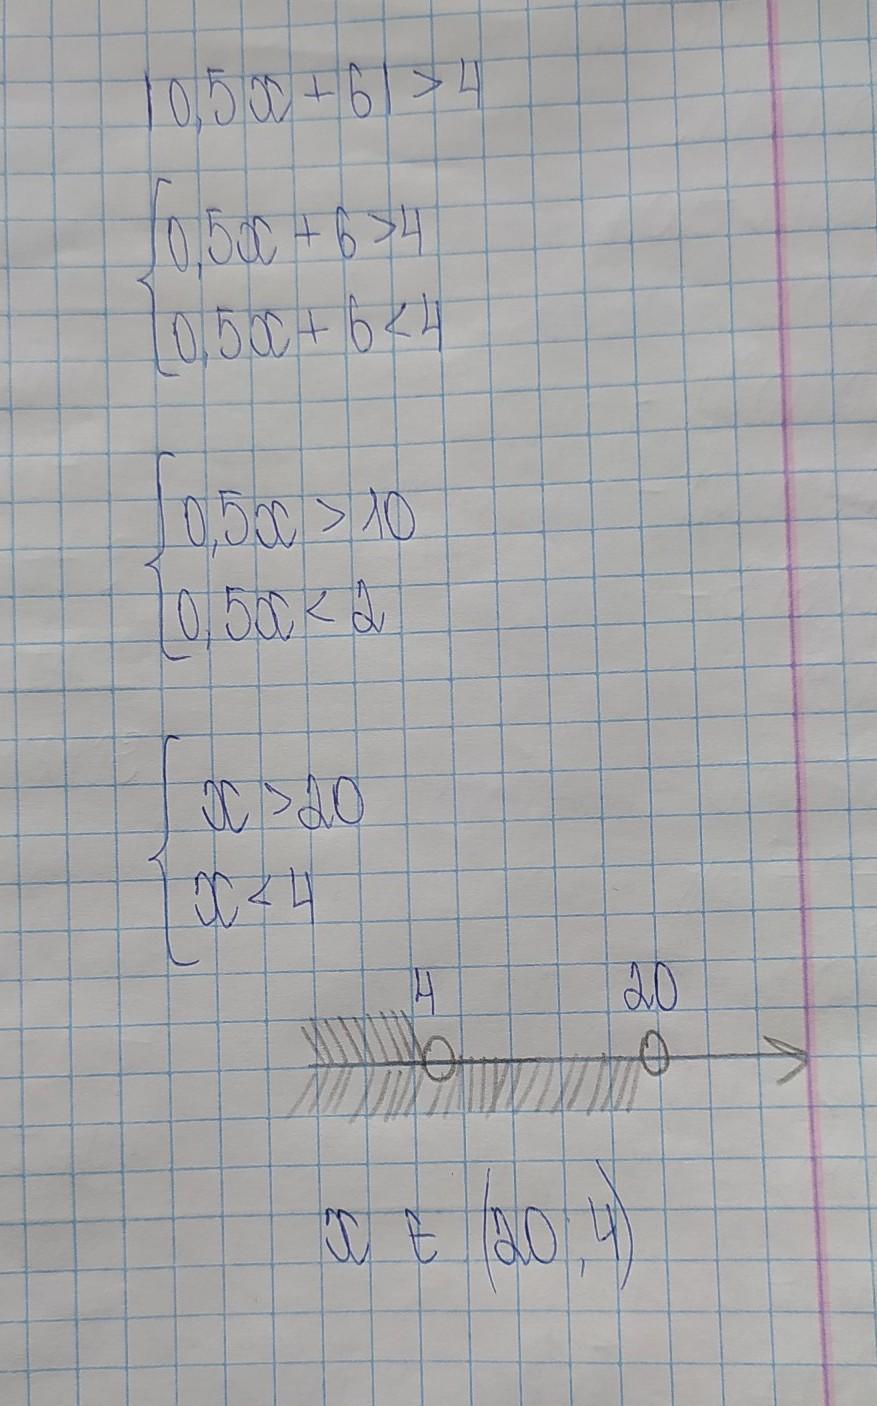 |0,5x + 6| > 4
0,5x + 6 > 4
0,5x + 6 < 4
0,5x > 10
0,5x < 2
x > 20
x < 4
4 20
x ∈ (20, 4)